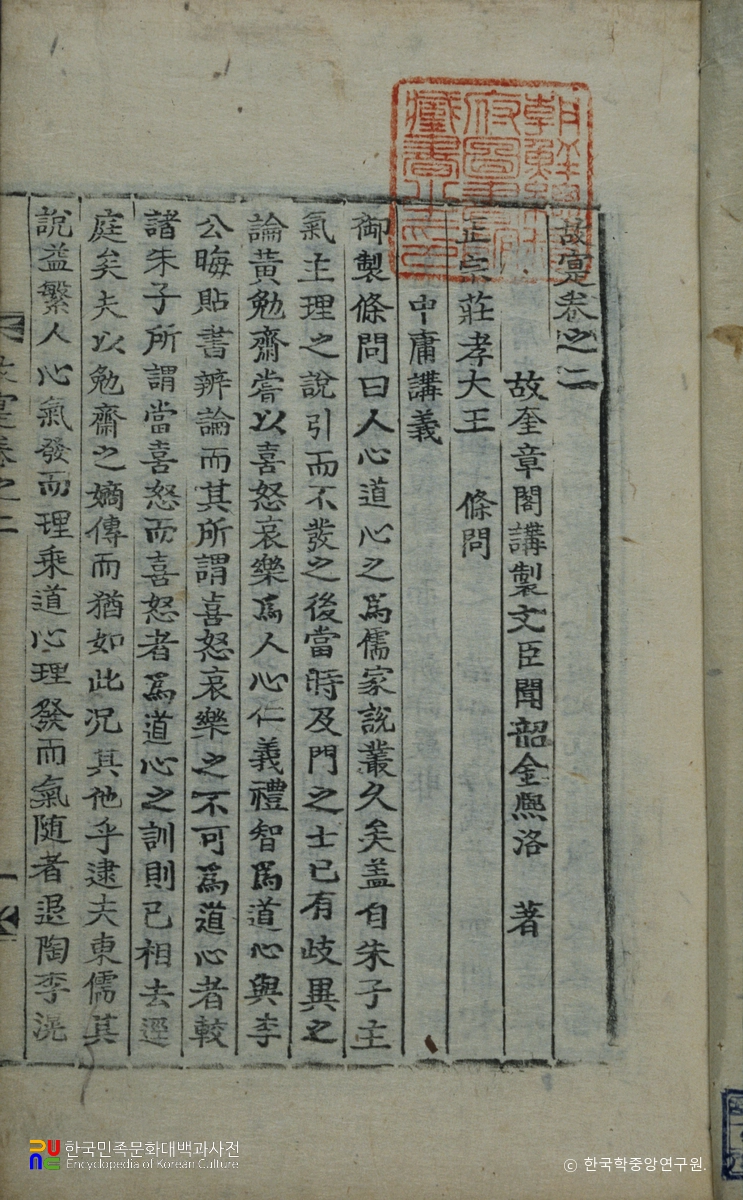 故寔卷之二
故奎章閣講製文臣聞韶金凞洛 著
正宗莊孝大王 條問
中庸講義
御製條問曰人心道心之爲儒家說叢久矣盖自朱子主
氣主理之說引而不發之後當時及門之士已有歧異之
論黃勉齋嘗以喜怒哀樂爲人心仁義禮智爲道心與李
公晦貼書辨論而其所謂喜怒哀樂之不可爲道心者較
諸朱子所謂當喜怒而喜怒者爲道心之訓則已相去逕
庭矣夫以勉齋之嫡傳而猶如此况其他乎逮夫東儒其
說益繁人心氣發而理乘道心理發而氣随者退陶李滉
故寔卷之二
一
朝鮮總督府圖書館藏書之印
한국민족문화대백과사전
Encyclopedia of Korean Culture
© 한국학중앙연구원.